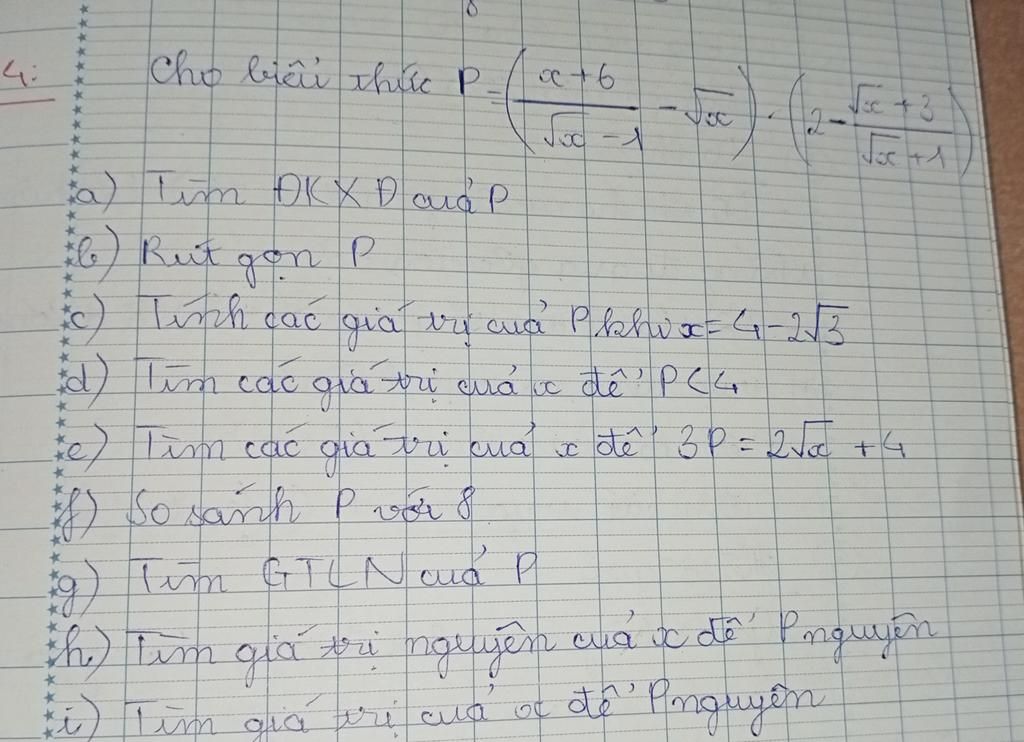 4: Cho biểu thức P = (x+6/√x-1 - √x) · (2 - √x+3/√x+1)
a) Tìm ĐKXĐ của P
b) Rút gọn P
c) Tính các giá trị của P khi x = 4 - 2√3
d) Tìm các giá trị của x để P < 4
e) Tìm các giá trị của x để 3P = 2√x + 4
f) So sánh P với 8
g) Tìm GTLN của P
h) Tìm giá trị nguyên của x để P nguyên
i) Tìm giá trị của x để P nguyên